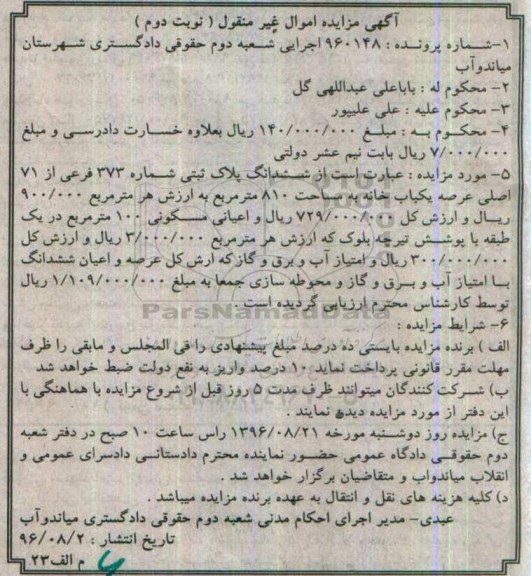 آگهی مزایده اموال غیر منقول ( نوبت دوم )
۱-شماره پرونده : ۹۶۰۱۴۸ اجرایی شعبه دوم حقوقی دادگستری شهرستان
میاندوآب
۲- محکوم له : باباعلی عبداللهی گل
۳- محکوم علیه : علی علیپور
۴- محکوم به : مبلغ ۱۴۰/۰۰۰/۰۰۰ ریال بعلاوه خسارت دادرسی و مبلغ
۷/۰۰۰/۰۰۰ ریال بابت نیم عشر دولتی
۵- مورد مزایده : عبارت است از ششدانگ پلاک ثبتی شماره ۳۷۳ فرعی از ۷۱
اصلی عرصه یکباب خانه به مساحت ۸۱۰ مترمربع به ارزش هر مترمربع ۹۰۰/۰۰۰
ریال و ارزش کل ۷۲۹/۰۰۰/۰۰۰ ریال و اعیانی مسکونی ۱۰۰ مترمربع در یک
طبقه با پوشش تیرچه بلوک که ارزش هر مترمربع ۳/۰۰۰/۰۰۰ ریال و ارزش کل
۳۰۰/۰۰۰/۰۰۰ ریال و امتیاز آب و برق و گازکه ارش کل عرصه و اعیان ششدانگ
با امتیاز آب و برق و گاز و محوطه سازی جمعا به مبلغ ۱/۱۰۹/۰۰۰/۰۰۰ ریال
توسط کارشناس محترم ارزیابی گردیده است
ParsNamadData
۶- شرایط مزایده :
الف ) برنده مزایده بایستی ده درصد مبلغ پیشنهادی را فی المجلس و مابقی را ظرف
مهلت مقرر قانونی پرداخت نماید ۱۰ درصد واریز به نفع دولت ضبط خواهد شد
ب) شرکت کنندگان میتوانند ظرف مدت ۵ روز قبل از شروع مزایده با هماهنگی با
این دفتر از مورد مزایده دیدن نمایند .
ج) مزایده روز دوشنبه مورخه ۱۳۹۶/۰۸/۲۱ راس ساعت ۱۰ صبح در دفتر شعبه
دوم حقوقی دادگاه عمومی حضور نماینده محترم دادستانی دادسرای عمومی و
انقلاب میاندواب و متقاضیان برگزار خواهد شد .
د) کلیه هزینه های نقل و انتقال به عهده برنده مزایده میباشد .
عبدی- مدیر اجرای احکام مدنی شعبه دوم حقوقی دادگستری میاندوآب
تاریخ انتشار : ۹۶/۰۸/۲
م الف۲۳